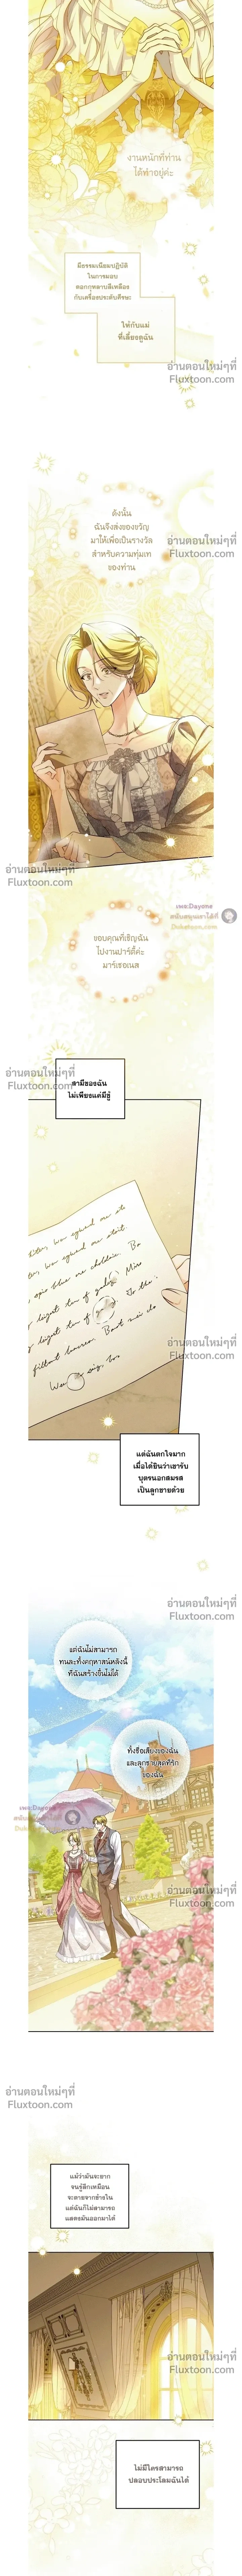 งานหนักที่ท่าน
ได้ทำอยู่ค่ะ
มีธรรมเนียมปฏิบัติ
ในการมอบ
ดอกกุหลาบสีเหลือง
กับเครื่องประดับศีรษะ
ให้กับแม่
ที่เลี้ยงดูฉัน
อ่านตอนใหม่ๆที่
Fluxtoon.com
ดังนั้น
ฉันจึงส่งของขวัญ
มาให้เพื่อเป็นรางวัล
สำหรับความทุ่มเท
ของท่าน
อ่านตอนใหม่ๆที่
Fluxtoon.com
อ่านตอนใหม่ๆที่
Fluxtoon.com
เพจ:Dayone
สนับสนุนเราได้ที่
Dokatoon.com
ขอบคุณที่เชิญฉัน
ไปงานปาร์ตี้ค่ะ
มาร์เชอเนส
อ่านตอนใหม่ๆที่
Fluxtoon.com
สามีของฉัน
ไม่เพียงแต่มีชู้
อ่านตอนใหม่ๆที่
Fluxtoon.com
แต่ฉันตกใจมาก
เมื่อได้ยินว่าเขารับ
บุตรนอกสมรส
เป็นลูกชายด้วย
อ่านตอนใหม่ๆที่
Fluxtoon.com
แต่ฉันไม่สามารถ
ทนละทิ้งคฤหาสน์หลังนี้
ที่ฉันสร้างขึ้นไม่ได้
ทั้งชื่อเสียงของฉัน
และลูกชายสุดที่รัก
ของฉัน
เพจ:Dayone
อ่านตอนใหม่ๆที่
Fluxtoon.com
อ่านตอนใหม่ๆที่
Fluxtoon.com
แม้ว่ามันจะยาก
จนรู้สึกเหมือน
จะตายจากข้างใน
แต่ฉันก็ไม่สามารถ
แสดงมันออกมาได้
อ่านตอนใหม่ๆที่
Fluxtoon.com
ไม่มีใครสามารถ
ปลอบประโลมฉันได้